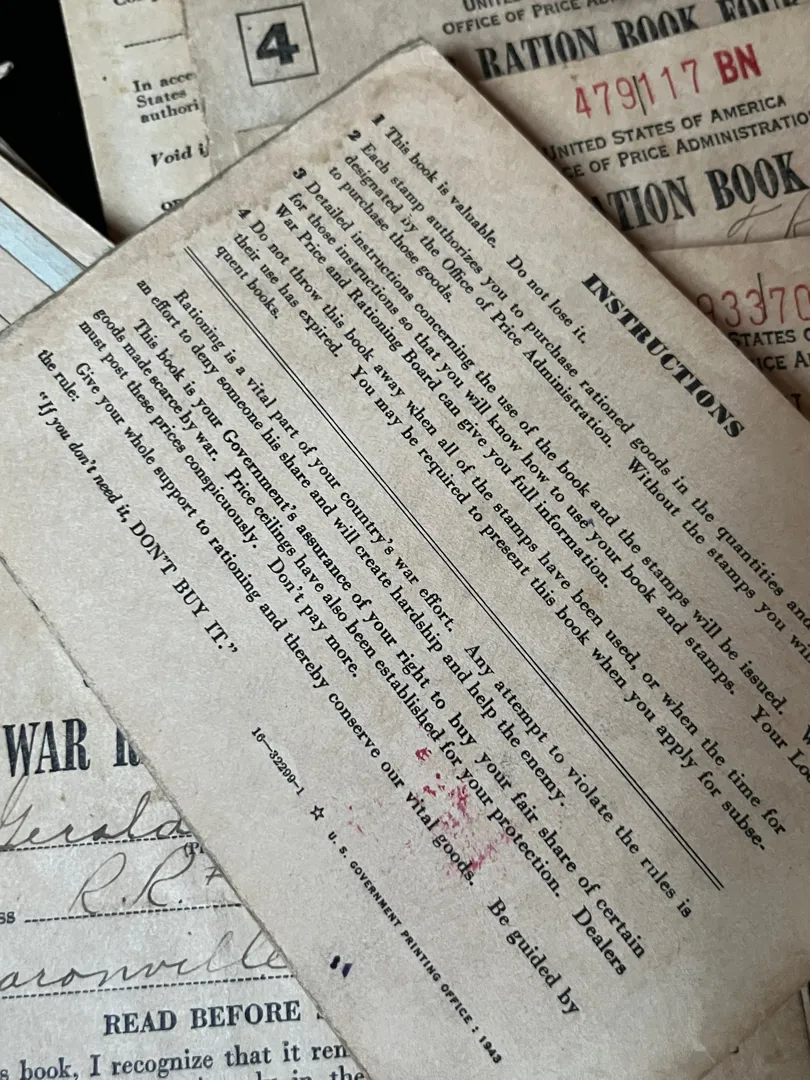 INSTRUCTIONS
1 This book is valuable. Do not lose it.
2 Each stamp authorizes you to purchase rationed goods in the quantities and
designated by the Office of Price Administration. Without the stamps you will
to purchase those goods.
3 Detailed instructions concerning the use of the book and the stamps will be issued.
for those instructions so that you will know how to use your book and stamps. Your Lo
War Price and Rationing Board can give you full information.
4 Do not throw this book away when all of the stamps have been used, or when the time for
their use has expired. You may be required to present this book when you apply for subse-
quent books.
Rationing is a vital part of your country's war effort. Any attempt to violate the rules is
an effort to deny someone his share and will create hardship and help the enemy.
This book is your Government's assurance of your right to buy your fair share of certain
goods made scarce by war. Price ceilings have also been established for your protection. Dealers
must post these prices conspicuously. Don't pay more.
Give your whole support to rationing and thereby conserve our vital goods. Be guided by
the rule:
"If you don't need it, DON'T BUY IT."
16—32299-1 ☆ U. S. GOVERNMENT PRINTING OFFICE : 1943
4
In acce
States
authori
Void i
OFFICE OF PRICE ADMINISTRA
RATION BOOK FOUR
479117 BN
UNITED STATES OF AMERICA
CE OF PRICE ADMINISTRATIO
TION BOOK
93370
STATES O
WAR R
Gerald
R.R.
ss
aronville
READ BEFORE
s book, I recognize that it ren
in the